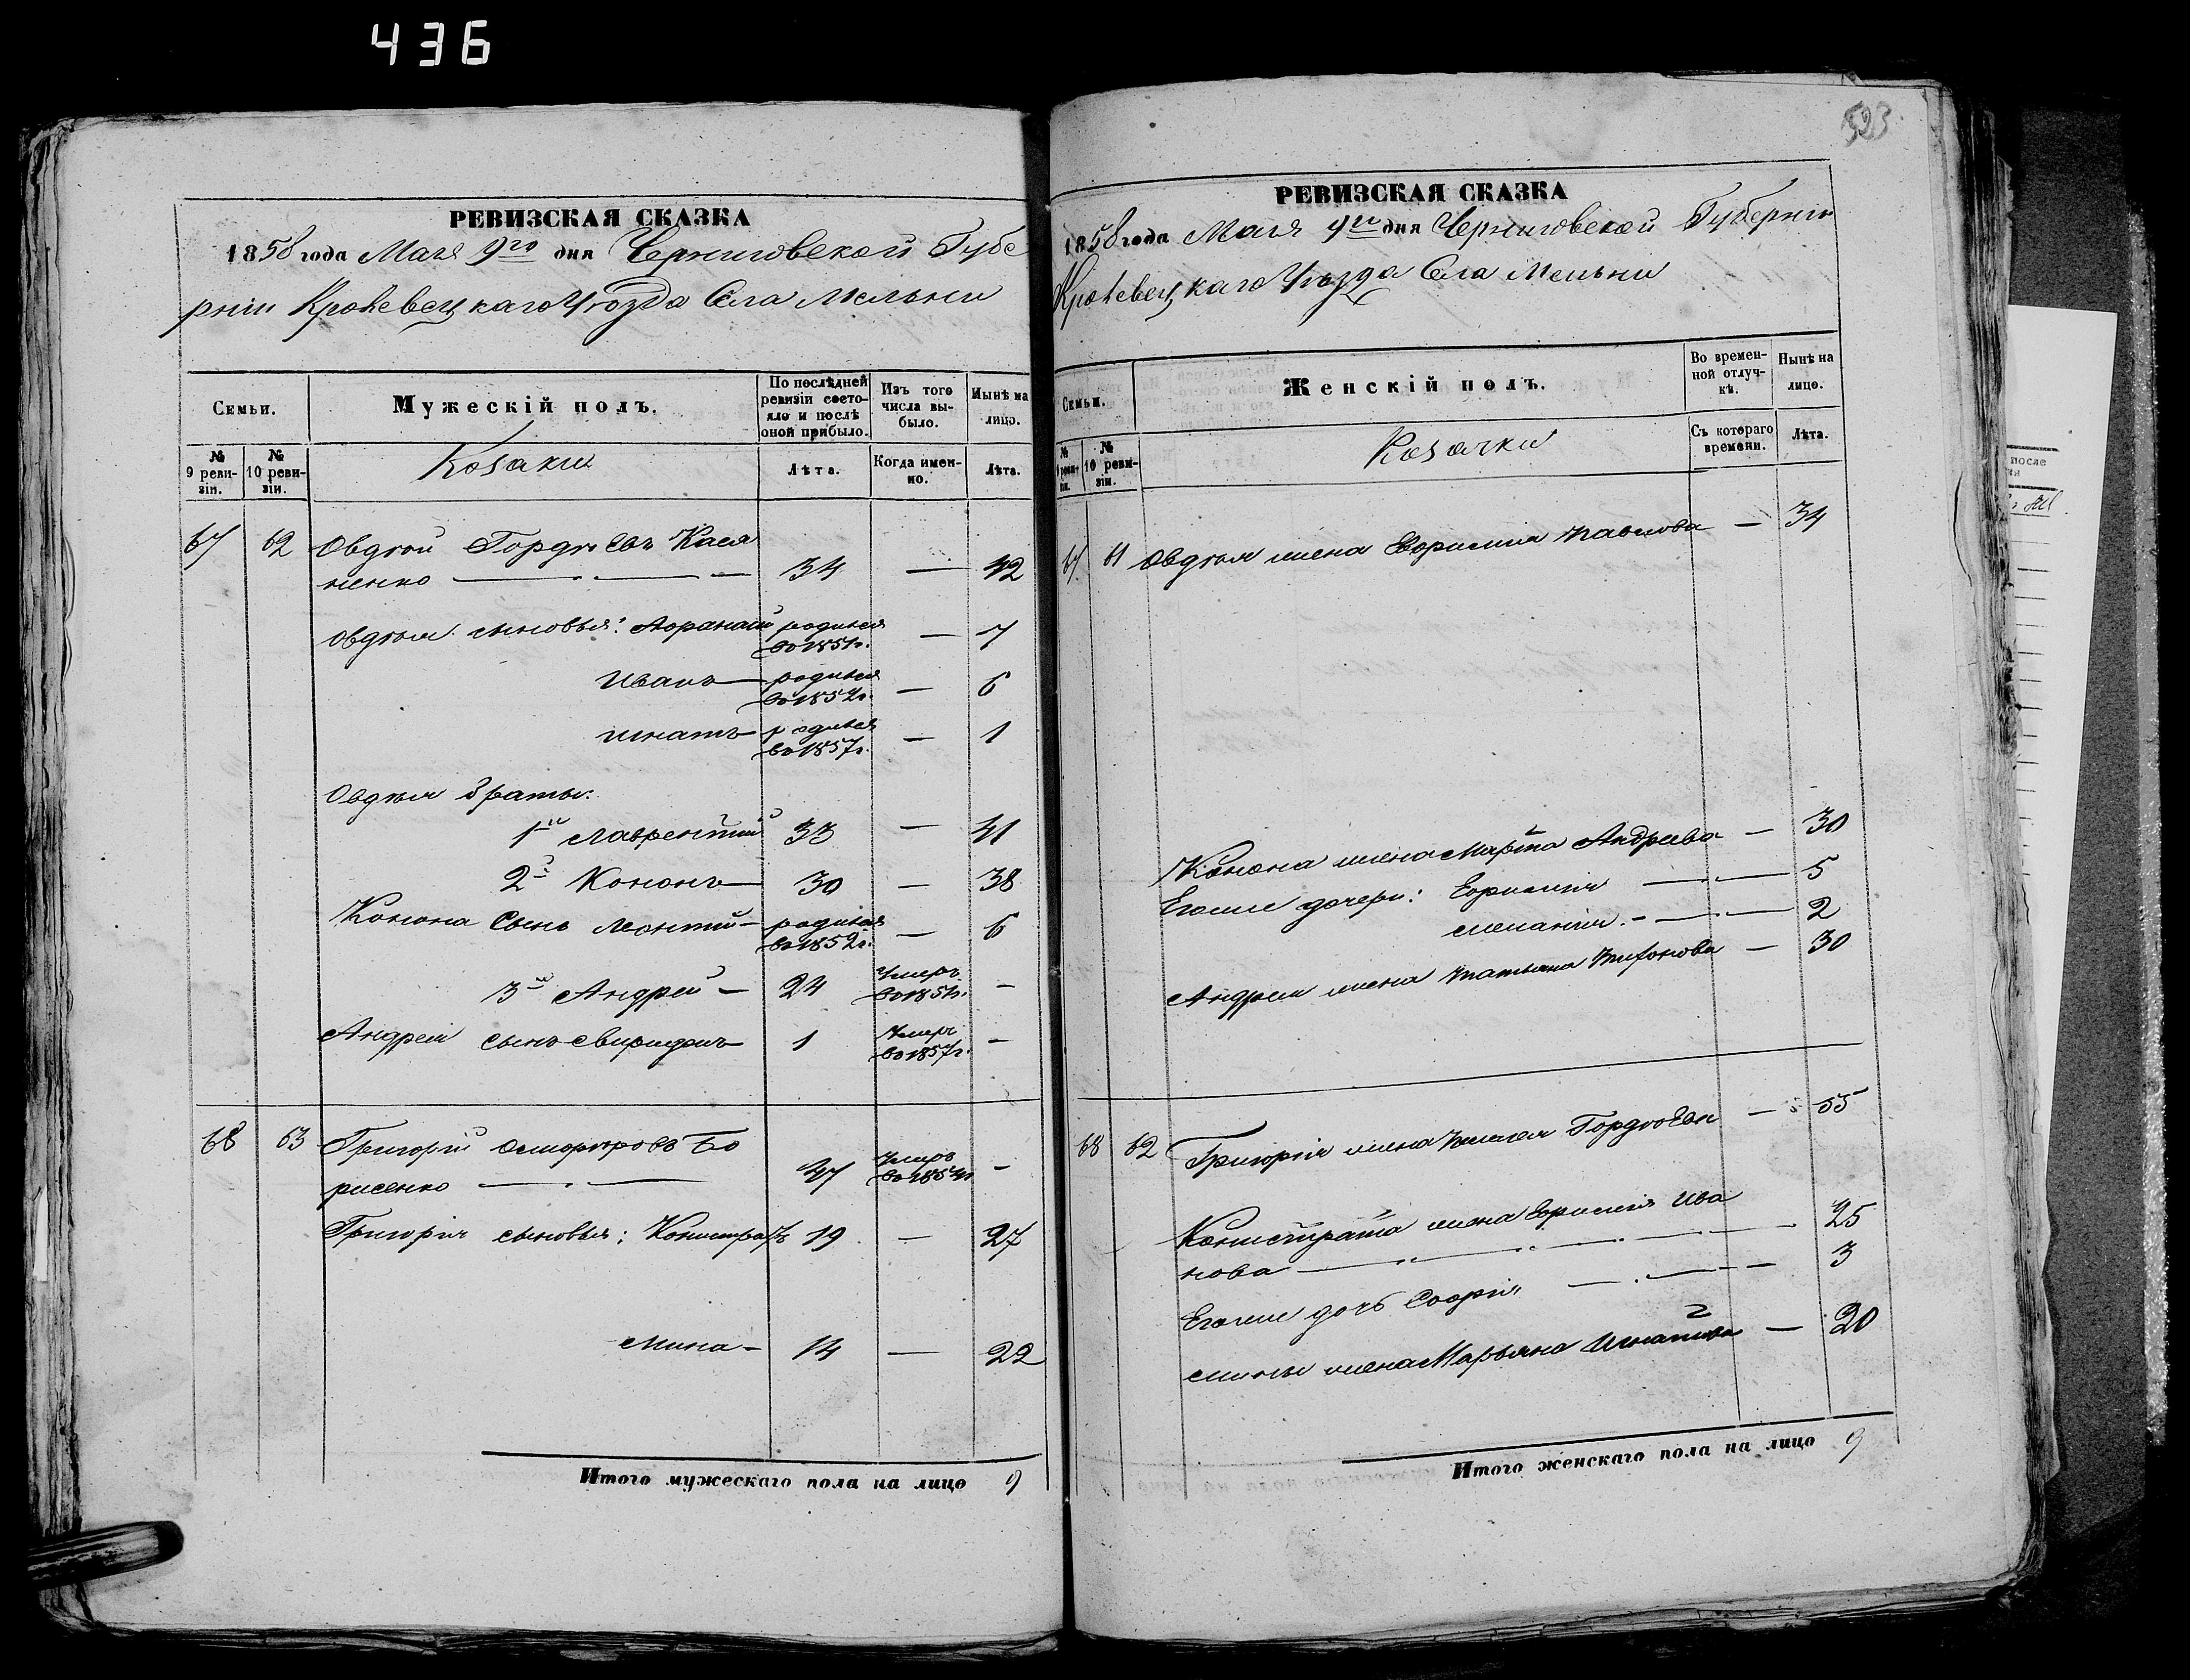 436
РЕВИЗСКАЯ СКАЗКА
1858 года Мая 9го дня Черниговской Губе
рніи Кролевецкаго Уѣзда Села Мельни
Семьи.
Мужескій полъ.
По послѣдней ревизіи состояло и послѣ оной прибыло.
Изъ того числа выбыло.
Нынѣ на лицо.
№ 9 ревизіи.
№ 10 ревизіи.
Козаки
Лѣта.
Когда именно.
Лѣта.
67 62 Овдѣй Гордѣевъ Кася
ненко 34 — 42
Овдѣя сыновья: Афанасій родился во 1851г. — 7
Иванъ родился во 1852г. — 6
Игнатъ родился во 1857г. — 1
Овдѣя браты:
1й Лаврентій 33 — 41
2й Кононъ 30 — 38
Конона Сынъ Леонтій родился во 1852г. — 6
3й Андрей 24 Умеръ во 1851г. —
Андрея сынъ Свиридонъ 1 Умеръ во 1857г. —
68 63 Григорій Бо
рисенко 47 Умеръ —
Григорія сыновья: Конистратъ 19 — 27
Мина — 14 — 22
Итого мужескаго пола на лицо 9
523
РЕВИЗСКАЯ СКАЗКА
1858 года Мая 9го дня Черниговской Губерніи
Кролевецкаго Уѣзда Села Мельни
Семьи.
Женскій полъ.
Во временной отлучкѣ.
Нынѣ на лицо.
№ ревизіи.
№ 10 ревизіи.
Козачки
Съ котораго времени.
Лѣта.
67 61 Овдѣя жена Ефросинія Павлова — 34
Конона жена Марта Андреева — 30
Егоже дочери: Ефросинія 5
Меланія 2
Андрея жена Татьяна Тифонова — 30
68 62 Григорія жена Гордѣева — 55
Конистрата жена Ефросинія Ива
нова 25
Егоже дочь Софія 3
Мины жена Марьяна Игнатова — 20
Итого женскаго пола на лицо 9